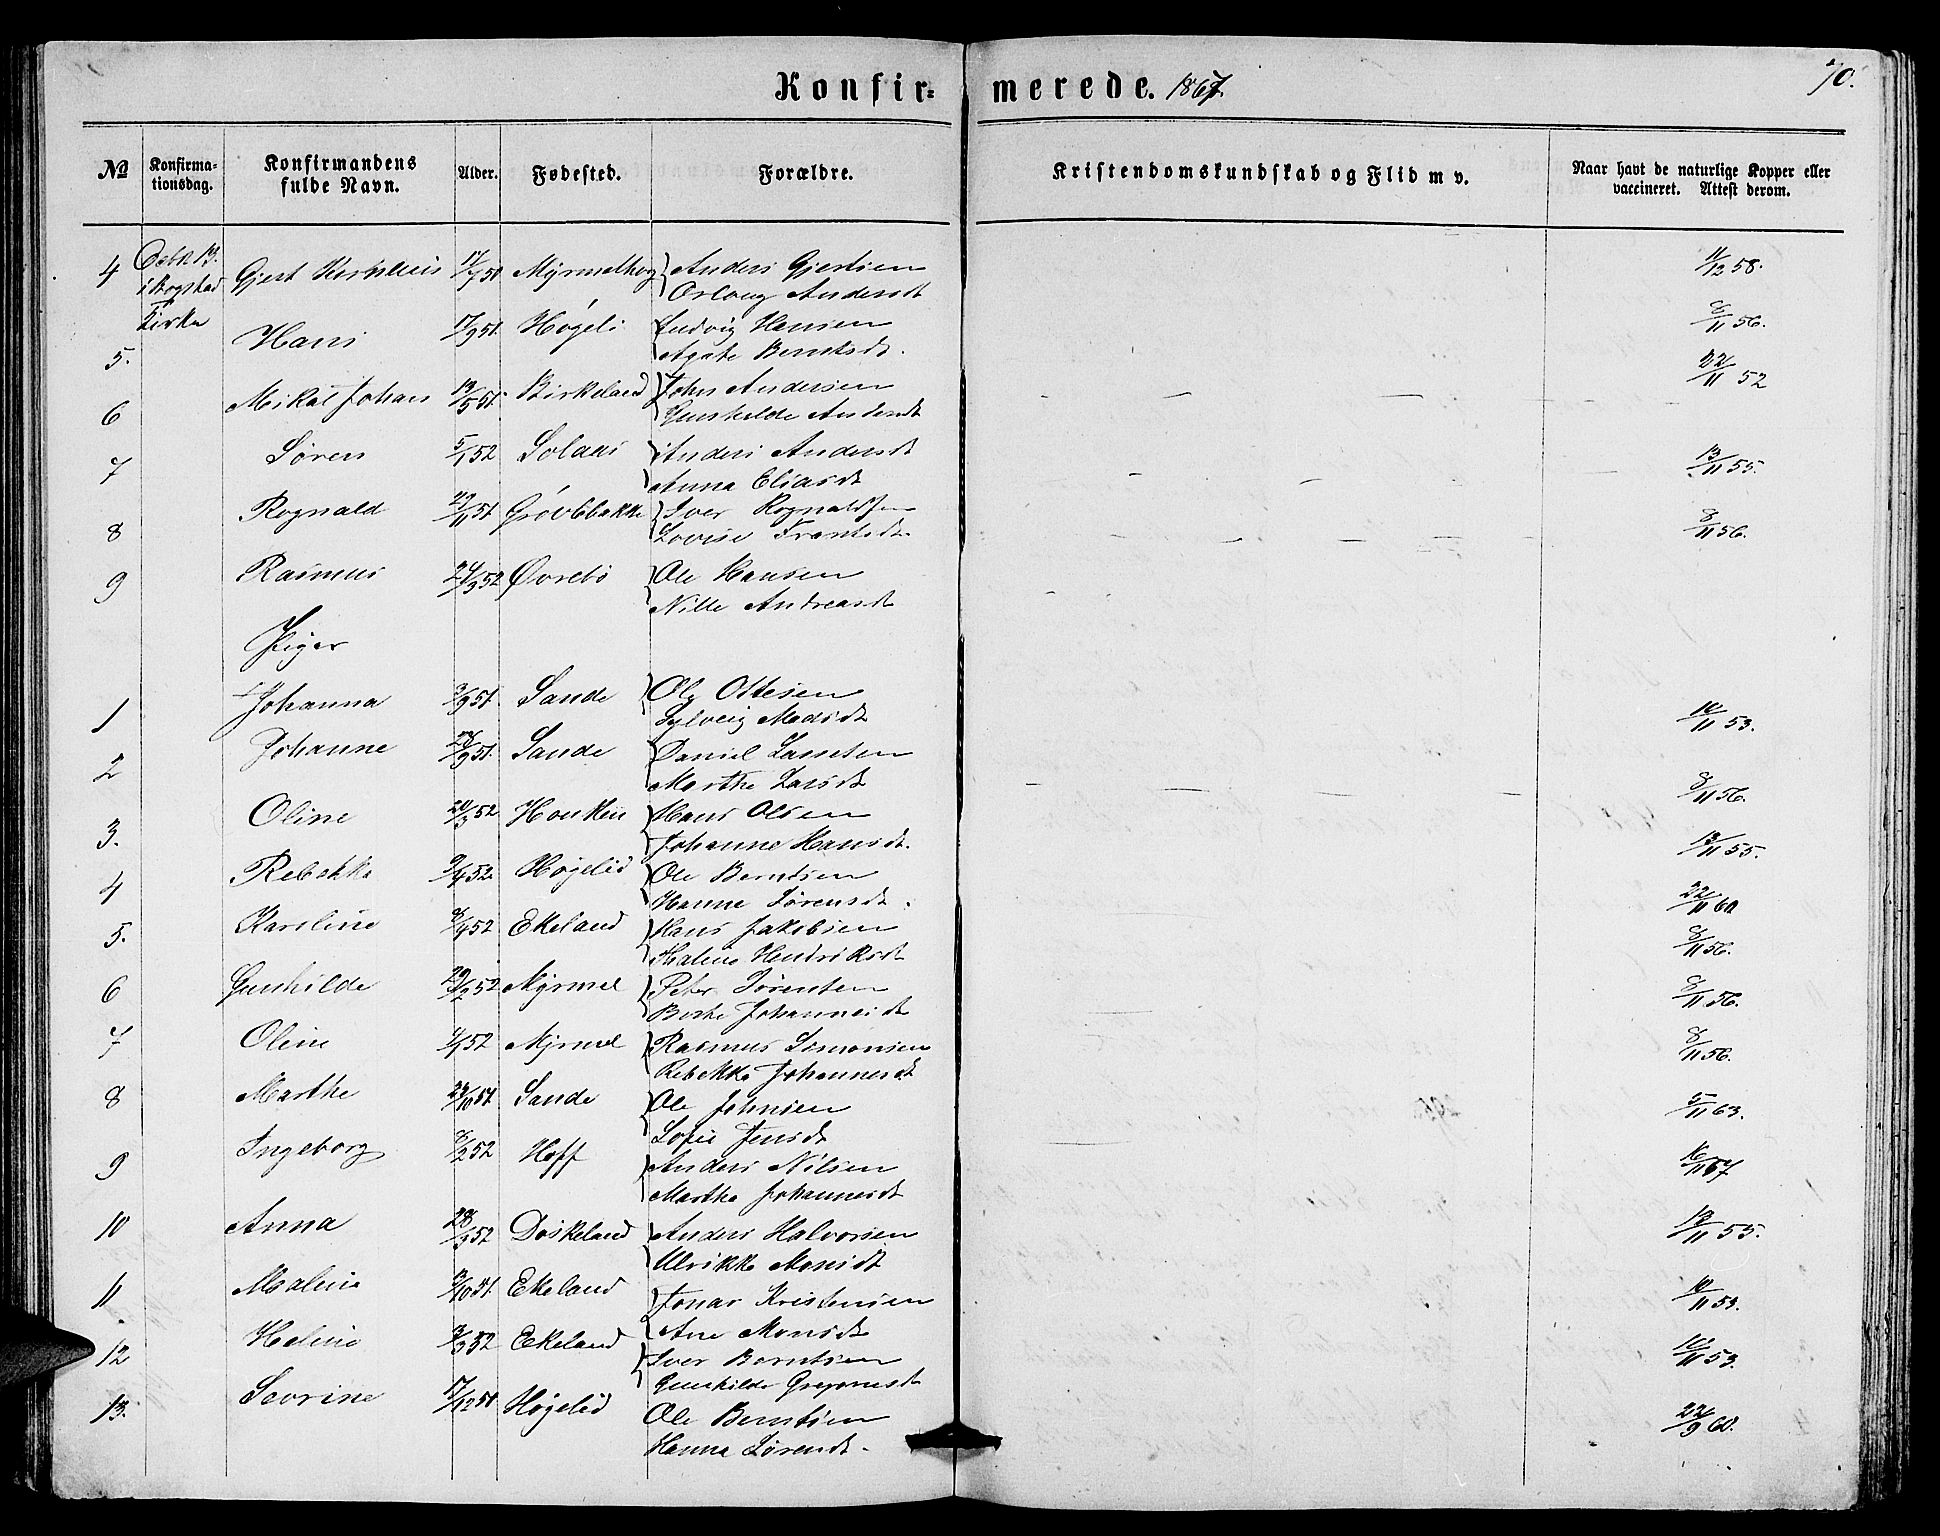 Konfir- merede. 1867.
70.
No
Konfirma-
tionsdag.
Konfirmandens
fulde Navn.
Alder.
Fødested.
Forældre.
Kristendomskundskab og Flid m v.
Naar havt de naturlige Kopper eller
vaccineret. Attest derom.
4 Octbr 13. Gjert 17/7 51 Anders Gjertsen 11/12 58.
Kirke Andersdt
5. Hans 17/9 51. Høgeli Ludvig Hansen 8/11 56.
Agate Berntsdt.
6 Mikal Johan 13/5 51. Birkeland John Andersen 22/11 52
Gunhilde Andersdt
7 Søren 5/1 52 Solaas Anders Andersdt 13/11 55.
Anna Eliasdt
8 Rognald 29/11 51 Iver Rognaldsen 8/11 56.
Lovise Frantsdt
9 Rasmus 24/3 52 Øvrebø Ole Hansen
Nille Andreasdt
Piger
1 Johanna 3/9 51. Sande Ole Ottesen 10/11 53.
Madsdt
2 Johanne 28/9 51. Sande Daniel Lassesen 8/11 56.
Marthe Larsdt
3. Oline 20/3 52 Hans Olsen 13/11 55.
Johanne Hansdt.
4 Rebekka 9/4 52. Høgelid Ole Berntsen 22/11 60
Hanne Sørensdt.
5. Karoline 8/4 52 Ekeland Hans Jakobsen 8/11 56.
Malene Hendriksdt
6 Gunhilde 29/2 52 Myrmel Peter Sørensen 8/11 56.
Johannesdt
7 Oline 4/1 52 Myrmel Rasmus Simonsen 8/11 56.
Rebekka Johannesdt
8 Marthe 24/10 51 Sande Ole Johnsen 5/11 63.
Sofie Jensdt
9 Ingeborg 8/2 52 Hoff Anders Nilsen 16/11 57
Martha Johannesdt
10 Anna 28/3 52 Døskeland Anders Halvorsen 13/11 55.
Ulrikke Monsdt
11 Malene 13/10 51. Ekeland Jonas Kristensen 10/11 53.
Ane Monsdt
12 Helene 3/3 52 Ekeland Iver Berntsen 10/11 53.
Gunhilde Gregoriusdt
13. Sevrine 17/12 51 Høgelid Ole Berntsen 22/9 60.
Hanna Sørensdt.